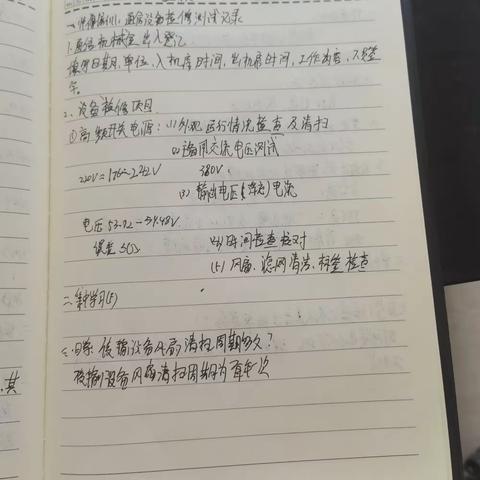 一、体系培训: 通信设备检修测试记录
1.通信机械室出入登记
填写日期, 单位, 入机房时间, 出机房时间, 工作内容, 签
字。
2、设备检修项目
①高频开关电源: (1)外观, 运行情况检查及清扫
(2)备用交流电压测试
220V=176~242V 380V、
(3) 输出电压(浮充)电流
电压53.92—54.48V
误差 (4)时间检查校对
(5) 风扇、滤网清洁、标签检查
二、集中学习(5)
三、日常: 传输设备风扇清扫周期多久?
传输设备风扇清扫周期为半年1次
其